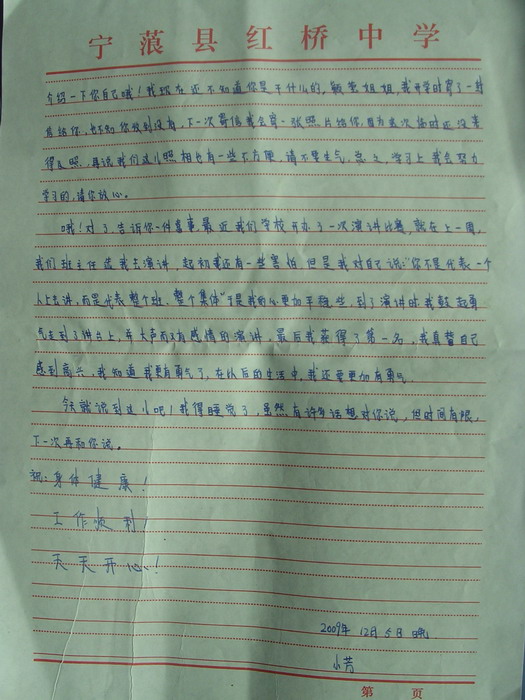 宁蒗县红桥中学
介绍一下你自己哦！我现在还不知道你是干什么的，敏莹姐姐，我开学时寄了一封
信给你，也不知你收到没有，下一次寄信我会寄一张照片给你，因为我这次临时还没来
得及照，再说我们这儿照相也有一些不方便，请不要生气，总之，学习上我会努力
学习的，请你放心。
哦！对了，告诉你一件喜事，最近我们学校开办了一次演讲比赛，就在上一周，
我们班主任选我去演讲，起初我还有一些害怕，但是我对自己说："你不是代表一个
人上去讲，而是代表整个班，整个集体"于是我的心更加平稳些，到了演讲时我鼓起勇
气走到了讲台上，并大声而又有感情的演讲，最后我获得了第一名，我真替自己
感到高兴，我知道我更有勇气了，在以后的生活中，我还要更加有勇气。
今天就说到这儿吧！我得睡觉了，虽然有许多话想对你说，但时间有限，
下一次再和你说。
祝：身体健康！
工作顺利！
天天开心！
2009年12月5日晚
小芳
第 页